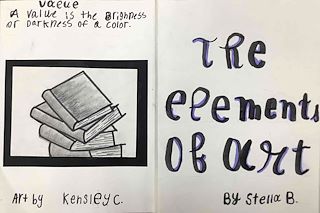 Value
A value is the Brighness
or Darkness of a color.
Art by Kensley C.
The
elements
Of art
By Stella B.